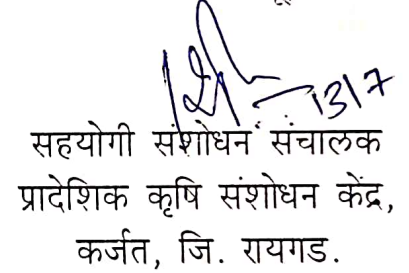 13/7
सहयोगी संशोधन संचालक
प्रादेशिक कृषि संशोधन केंद्र,
कर्जत, जि. रायगड.